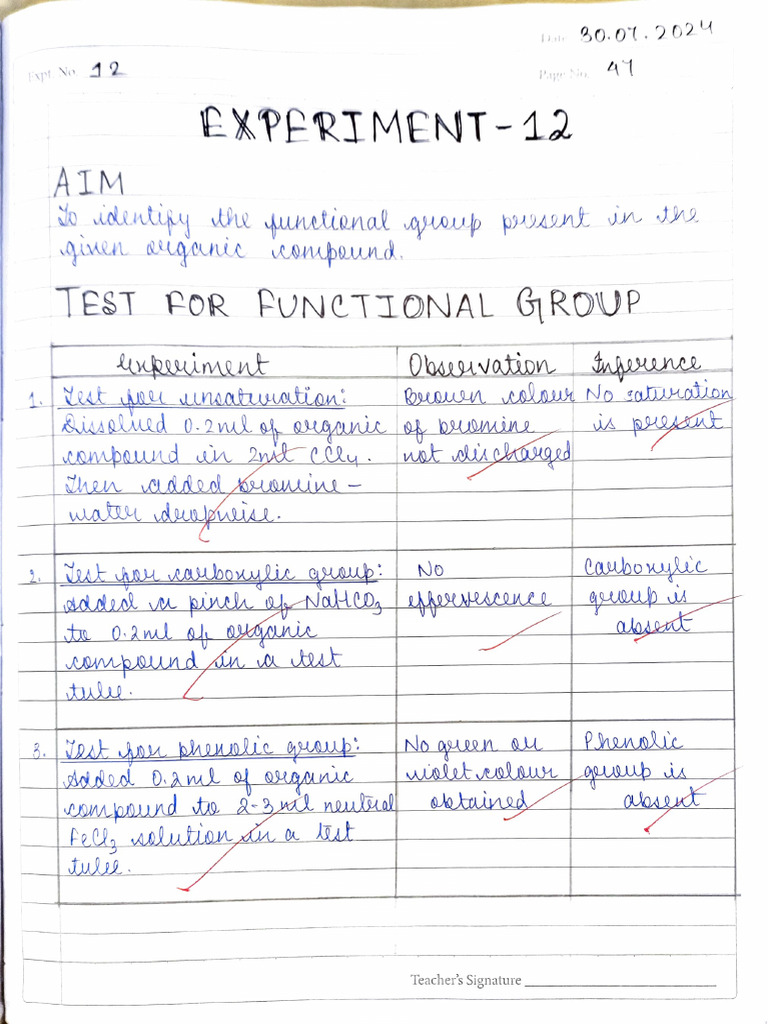 Date 30.07.2024
Expt. No. 12
Page No. 47
EXPERIMENT-12
AIM
To identify the functional group present in the
given organic compound.
TEST FOR FUNCTIONAL GROUP
Experiment Observation Inference
1. Test for unsaturation: Brown colour No saturation
Dissolved 0.2ml of organic of bromine is present
compound in 2ml CCl4. not discharged
Then added bromine-
water dropwise.
2. Test for carboxylic group: No Carboxylic
Added a pinch of NaHCO3 effervescence group is
to 0.2ml of organic absent
compound in a test
tube.
3. Test for phenolic group: No green or Phenolic
Added 0.2ml of organic violet colour group is
compound to 2-3ml neutral obtained absent
FeCl3 solution in a test
tube.
Teacher's Signature